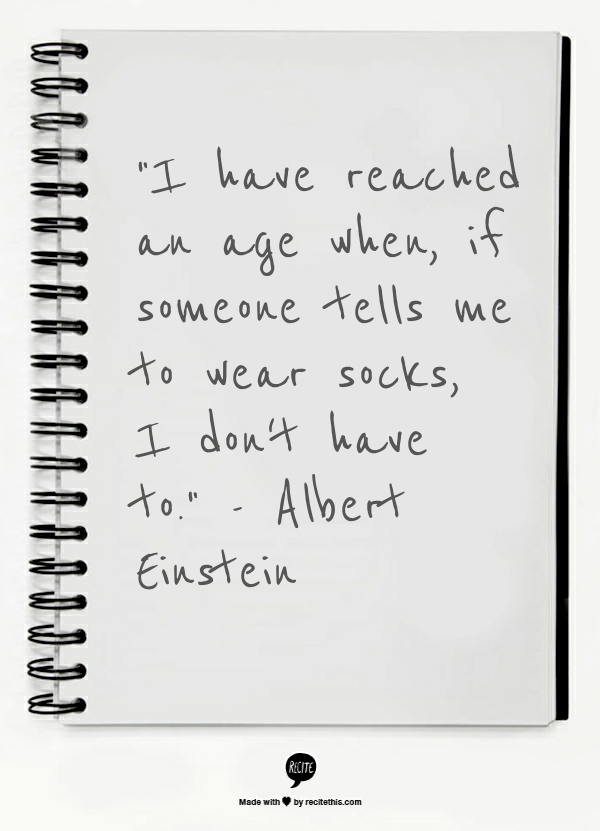 "I have reached
an age when, if
someone tells me
to wear socks,
I don't have
to." - Albert
Einstein
RECITE
Made with ♥ by recitethis.com